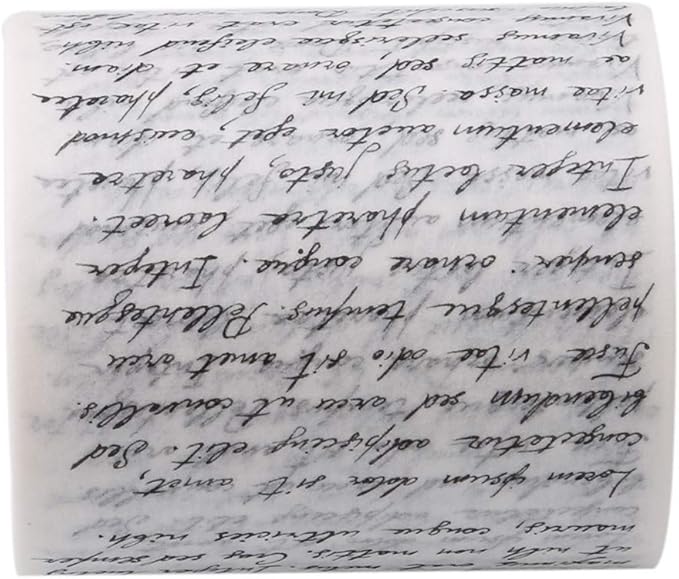 ut nibh non mattis. Cras sed semper
mauris, congue ultricies nibh.
Lorem ipsum dolor sit amet,
consectetur adipiscing elit. Sed
bibendum sed arcu ut convallis.
Fusce vitae odio sit amet arcu
pellentesque tempus. Pellentesque
semper ornare congue. Integer
elementum a pharetra laoreet.
Integer lectus justo, pharetra
elementum auctor eget, euismod
vitae massa. Sed mi felis, pharetra
ac mattis sed, ornare et diam.
Vivamus scelerisque eleifend nibh
Vivamus consectetur erat vitae